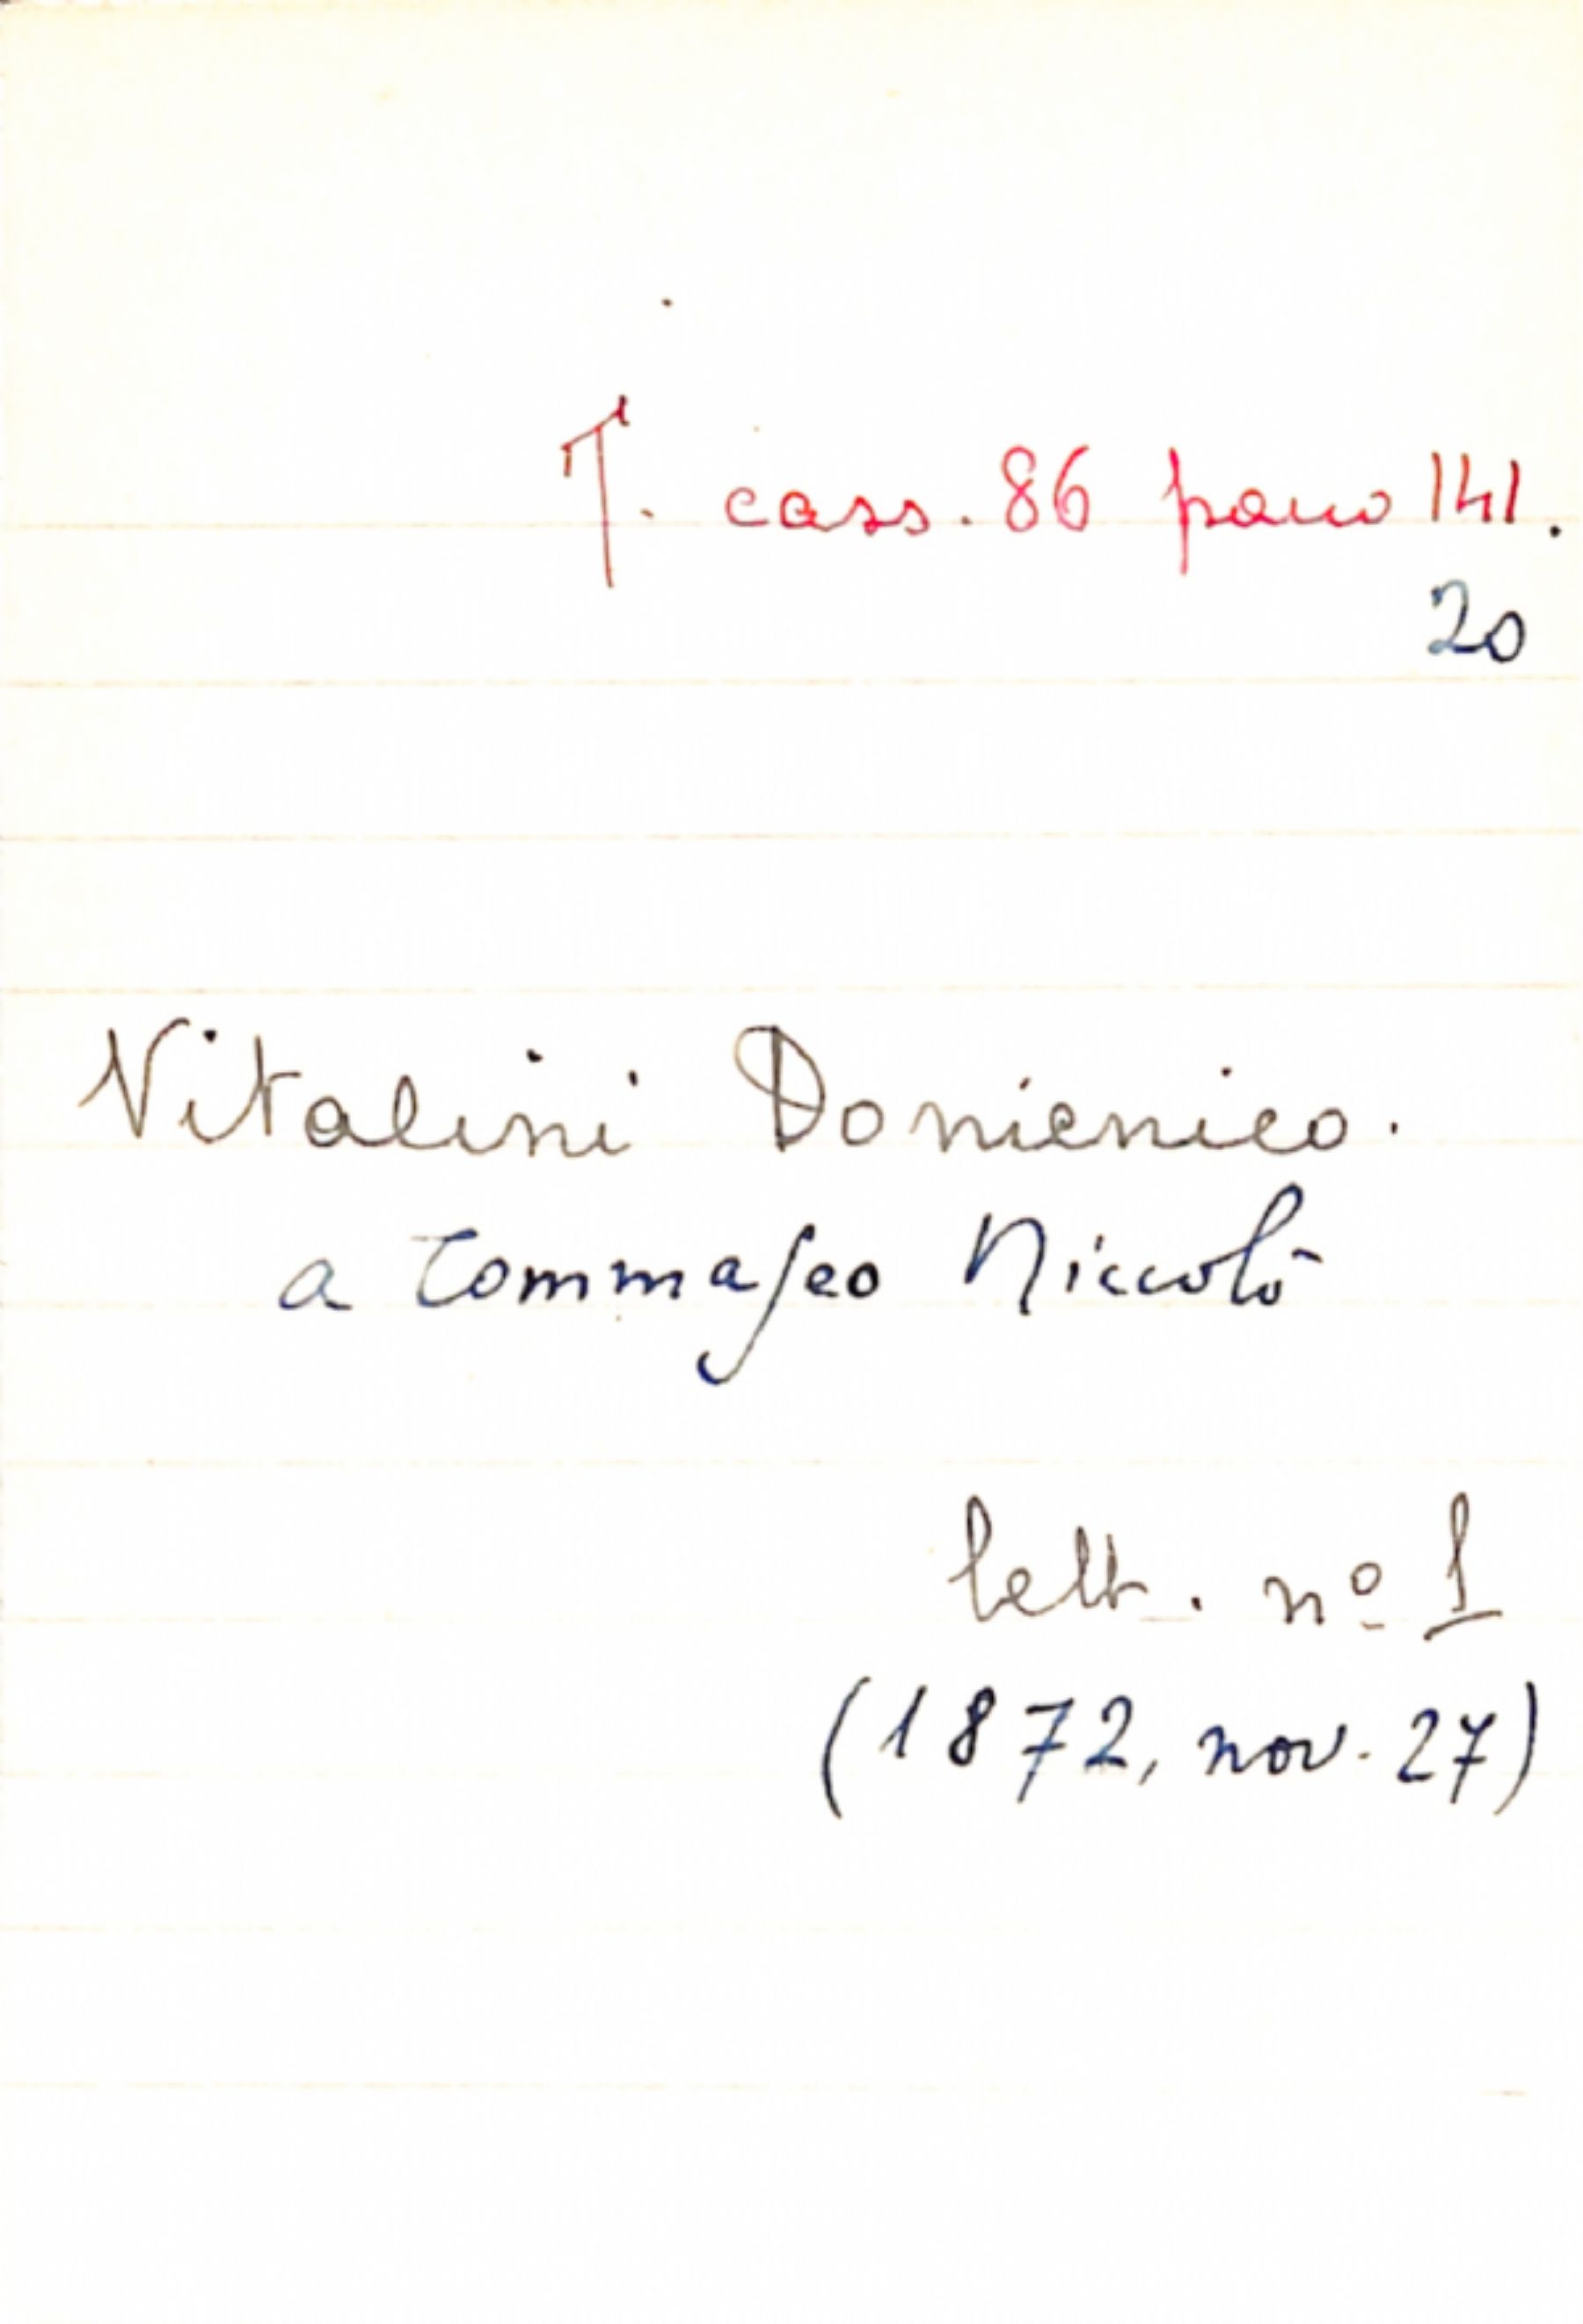 T. cass. 86 pacco 141.
20
Vitalini Domenico.
a Tommaseo Niccolò
lett. nº 1
(1872, nov. 27)